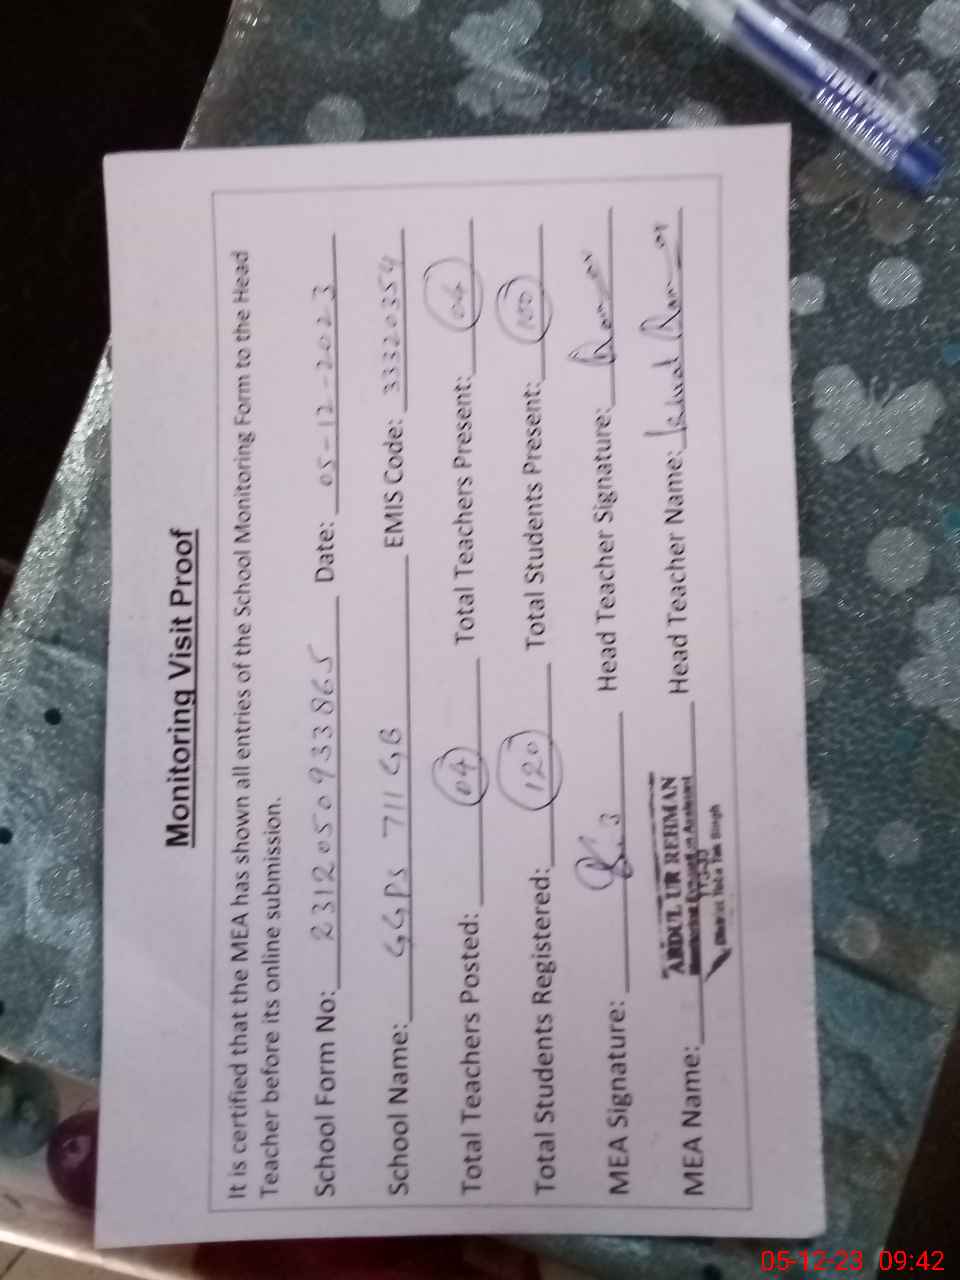 Monitoring Visit Proof
It is certified that the MEA has shown all entries of the School Monitoring Form to the Head
Teacher before its online submission.
School Form No: 2312050933865 Date: 05-12-2023
School Name: GGPS 711 GB EMIS Code: 33320354
Total Teachers Posted: 04 Total Teachers Present: 04
Total Students Registered: 120 Total Students Present: 100
MEA Signature: Head Teacher Signature:
MEA Name: ABDUL UR REHMAN Head Teacher Name:
Monitoring Evaluation Assistant
District Toba Tek Singh
05-12-23 09:42